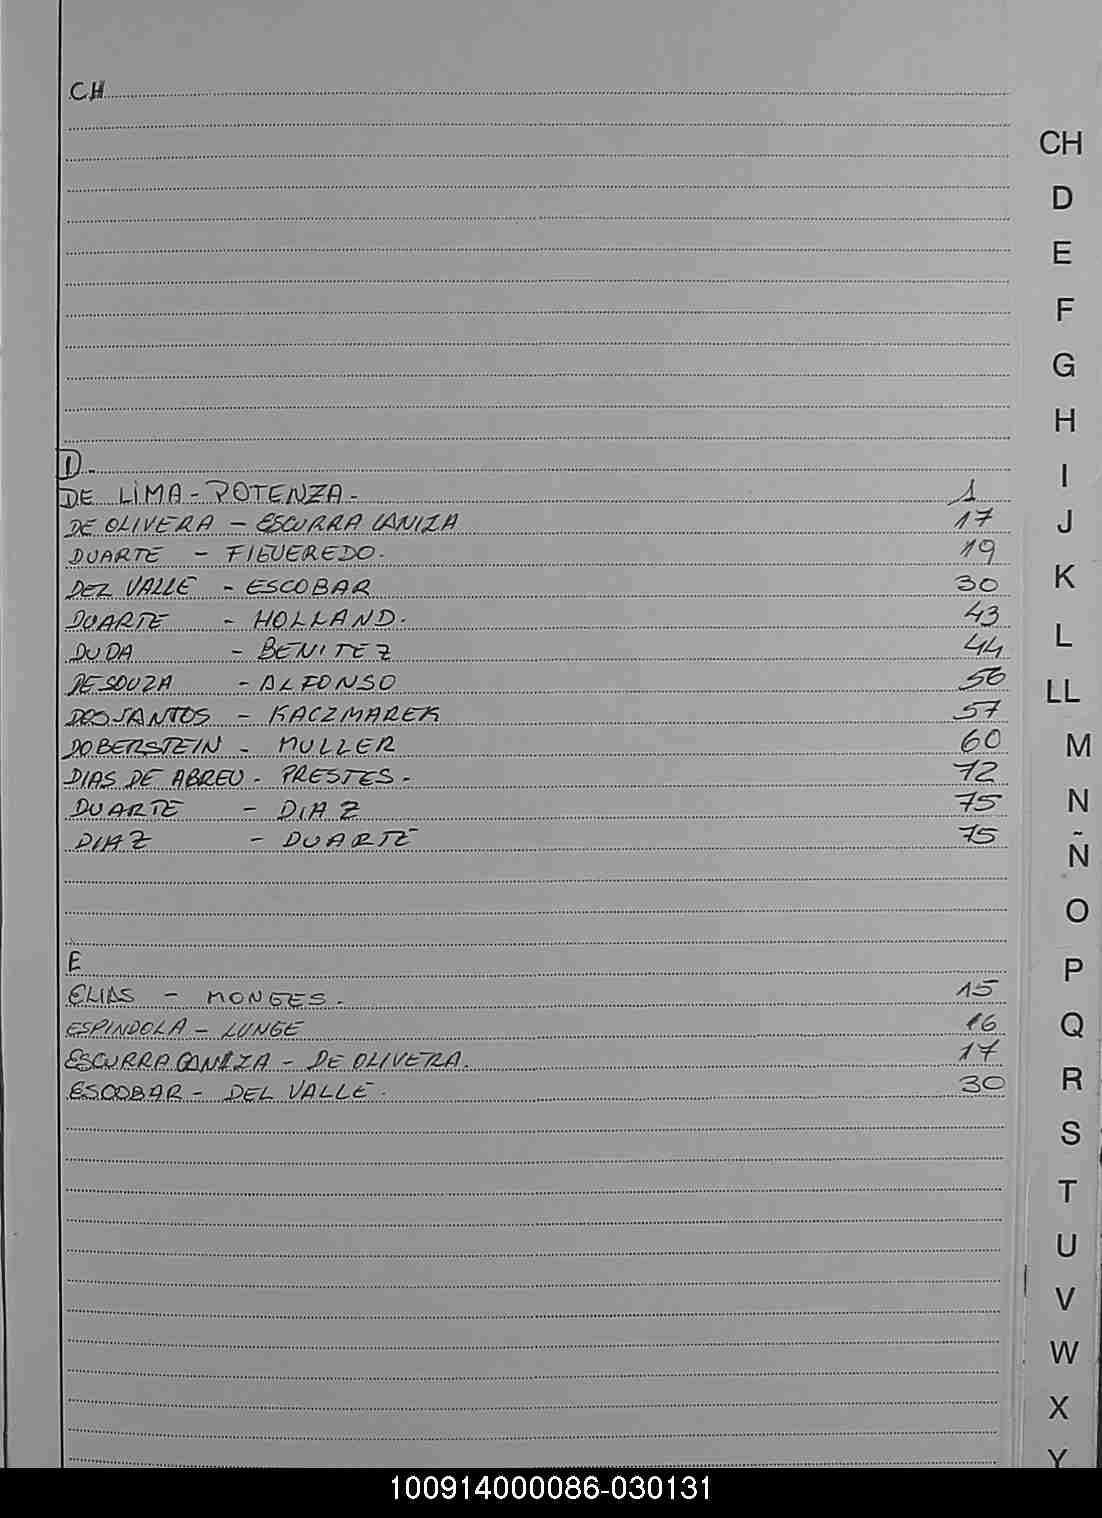 CH
D.
DE LIMA - POTENZA - 1
DE OLIVERA - ESCURRA CANIZA 17
DUARTE - FIGUEREDO. 19
DEL VALLE - ESCOBAR 30
DUARTE - HOLLAND. 43
DUDA - BENITEZ 44
DE SOUZA - ALFONSO 56
DOS SANTOS - KACZMAREK 57
DOBERSTEIN - MULLER 60
DIAS DE ABREU - PRESTES - 72
DUARTE - DIAZ 75
DIAZ - DUARTE 75
E
ELIAS - MONGES. 15
ESPINDOLA - LUNGE 16
ESCURRA CANIZA - DE OLIVERA. 17
ESCOBAR - DEL VALLE. 30
CH
D
E
F
G
H
I
J
K
L
LL
M
N
Ñ
O
P
Q
R
S
T
U
V
W
X
Y
100914000086-030131